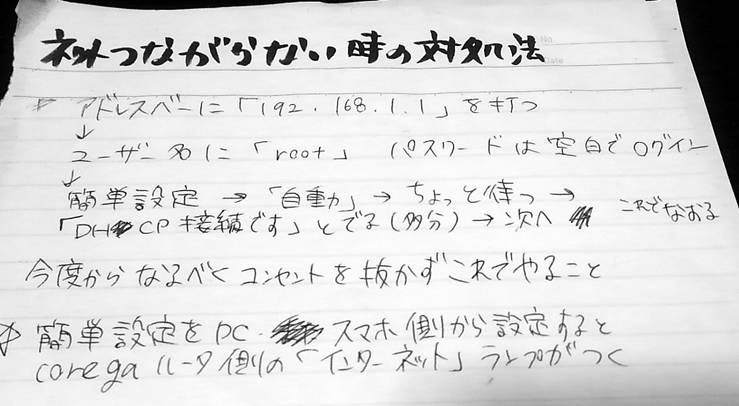 ネットつながらない時の対処法
No.
Date
アドレスバーに「192.168.1.1」を打つ
↓
ユーザー名に「root」 パスワードは空白でログイン
↓
簡単設定 → 「自動」→ ちょっと待つ →
「DHCP接続です」とでる(多分) → 次へ これでなおる
今度からなるべくコンセントを抜かずこれでやること
☆ 簡単設定をPC・スマホ側から設定すると
coregaルータ側の「インターネット」ランプがつく